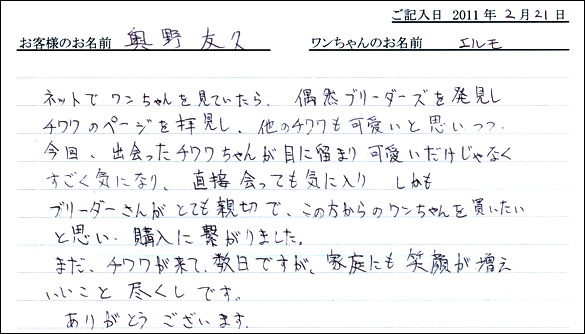 ご記入日 2011年2月21日
お客様のお名前 奥野友久 ワンちゃんのお名前 エルモ
ネットでワンちゃんを見ていたら、偶然ブリーダーズを発見し
チワワのページを拝見し、他のチワワも可愛いと思いつつ、
今回、出会ったチワワちゃんが目に留まり可愛いだけじゃなく
すごく気になり、直接会っても気に入り しかも
ブリーダーさんがとても親切で、この方からのワンちゃんを買いたい
と思い、購入に繋がりました。
まだ、チワワが来て、数日ですが、家庭にも笑顔が増え
いいこと尽くしです。
ありがとうございます.